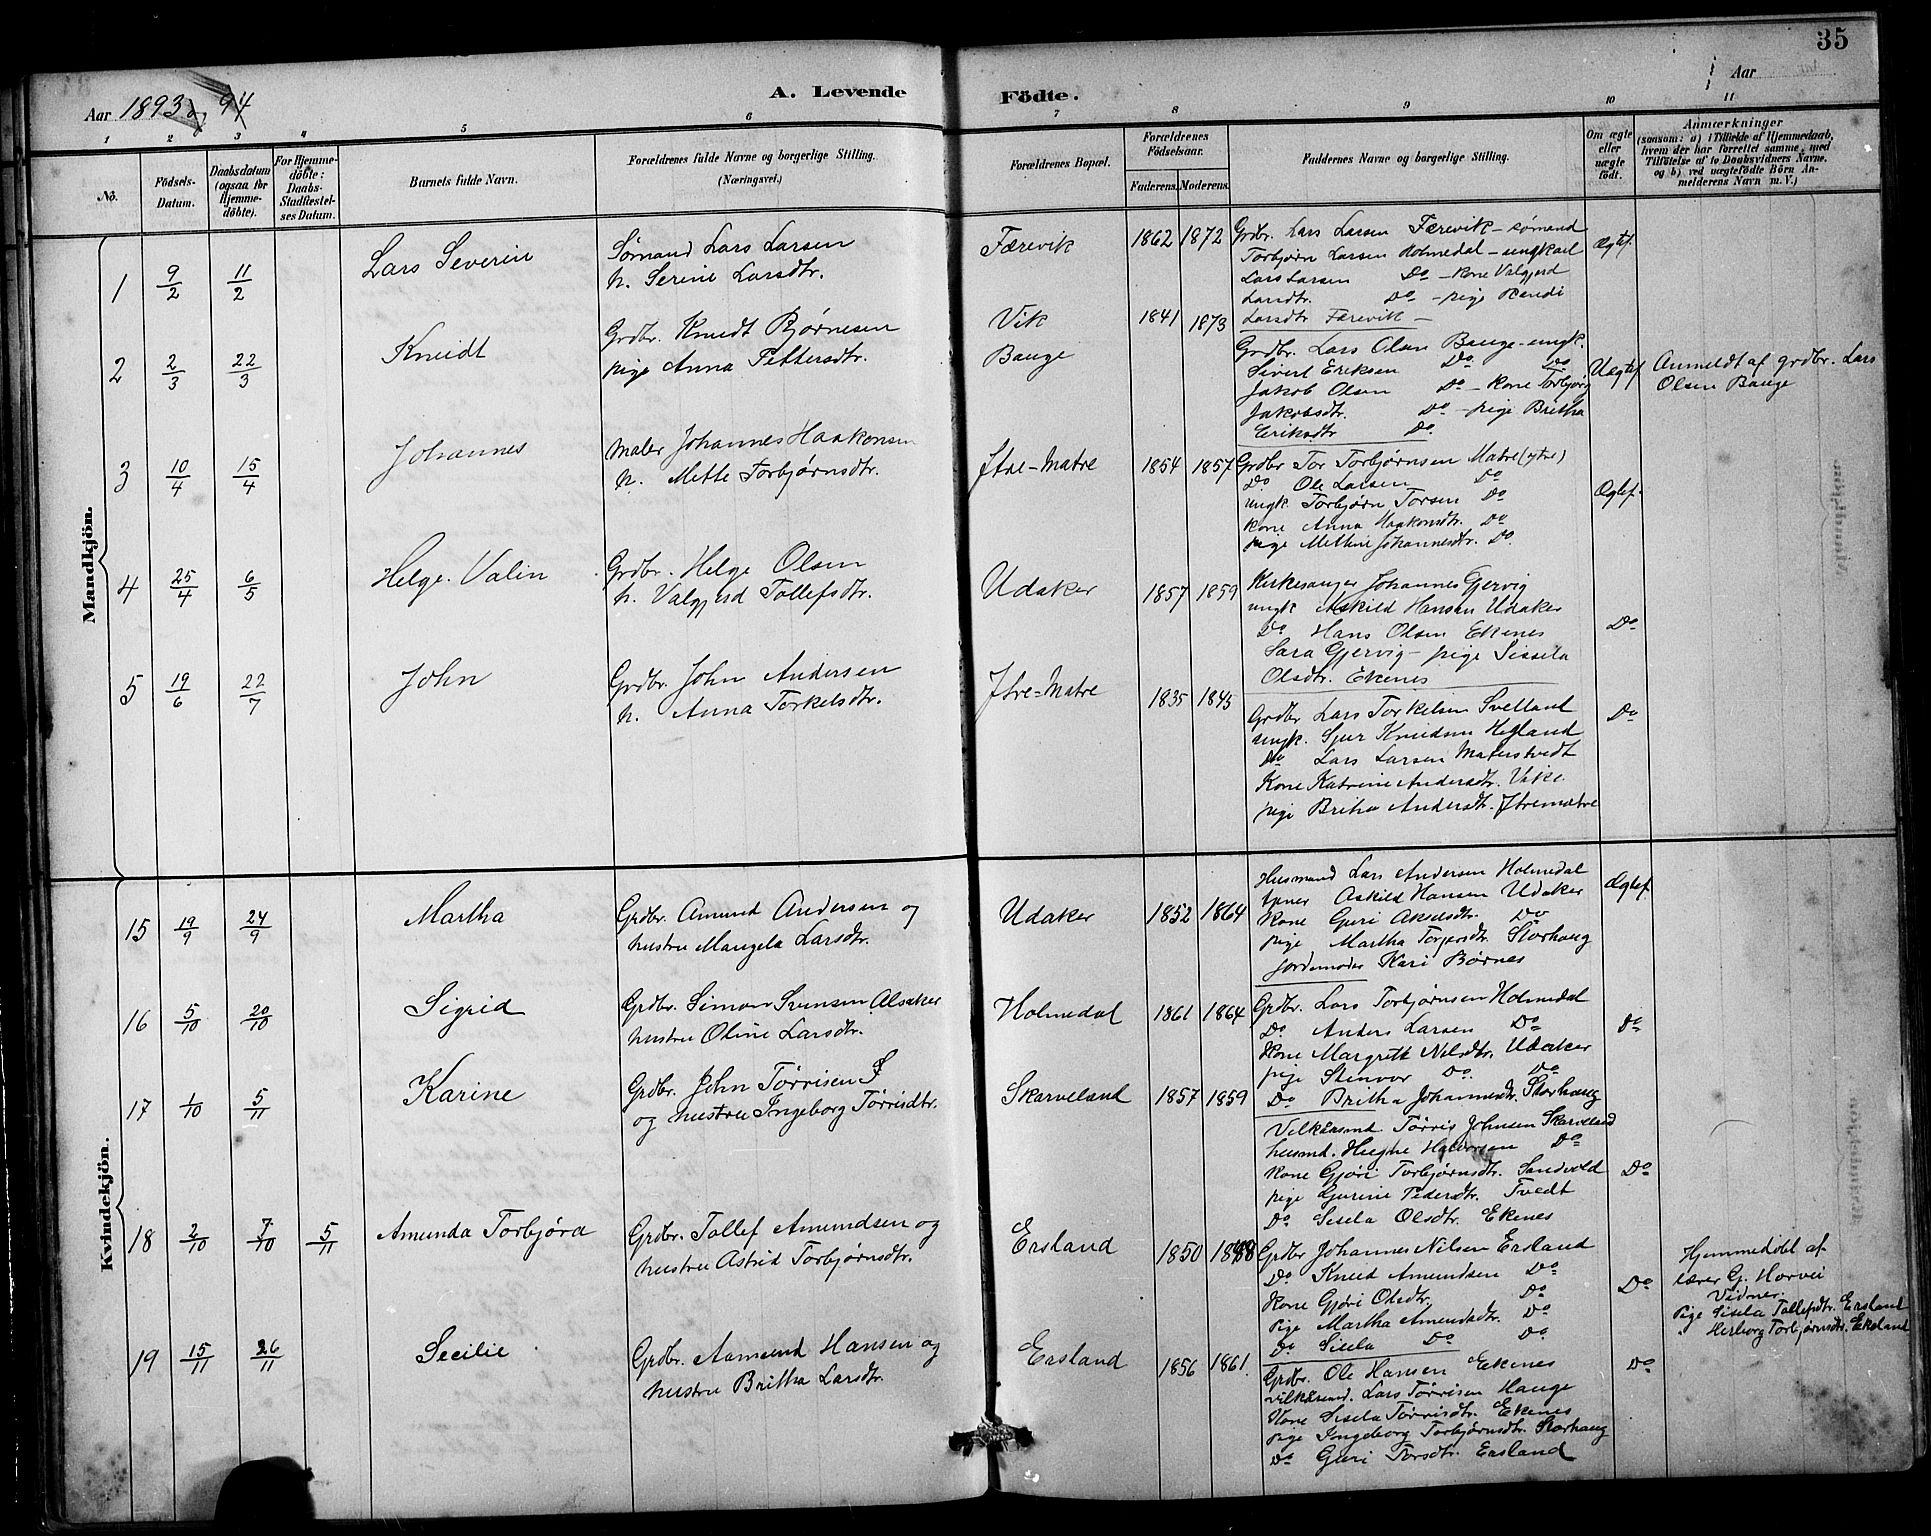 35
Aar 1893 og 94
A. Levende Födte.
Aar
1 2 3 4 5 6 7 8 9 10 11
No.
Födsels-Datum.
Daabsdatum (ogsaa for Hjemme-döbte).
For Hjemme-döbte: Daabs-Stadfæstel-ses Datum.
Barnets fulde Navn.
Forældrenes fulde Navne og borgerlige Stilling.
(Næringsvei.)
Forældrenes Bopæl.
Forældrenes Födselsaar.
Faderens. Moderens.
Faddernes Navne og borgerlige Stilling.
Om ægte eller uægte födt.
Anmærkninger
(saasom: a) i Tilfælde af Hjemmedaab,
hvem der har forrettet samme, med
Tilföielse af to Daabsvidners Navne.
og b) ved uægtefödte Börn An-
melderens Navn m. V.)
Mandkjön.
1 9/2 11/2 Lars Severin
Sømand Lars Larsen
h. Serine Larsdtr.
Færevik 1862 1872
Grdbr. Lars Larsen Færevik - sømand
Torbjørn Larsen Holmedal - ungkarl
Lars Larsen Do - kone Valgjerd
Larsdtr. Do - pige Randi
Larsdtr Færevik -
Ægtef.
2 2/3 22/3 Knudt
Grdbr. Knudt Bjørnesen
pige Anna Pettersdtr.
Vik 1841
Bauge 1873
Grdbr. Lars Olsen Bauge - ungk.
Sivert Eriksen Do Do
Jakob Olsen Do - kone Torbjørg
Jakobsdtr. Do - pige Britha
Eriksdtr Do.
Uægtef.
Anmeldt af grdbr. Lars
Olsen Bauge
3 10/4 15/4 Johannes
maler Johannes Haakonsen
h. Mette Torbjørnsdtr.
Itre-Matre 1854 1857
Grdbr Tor Torbjørnsen Matre (ytre)
Do Ole Larsen Do
ungk Torbjørn Torsen Do
kone Anna Haakonsdtr. Do
pige Methine Johannesdtr. Do.
Ægtef.
4 25/4 6/5 Helge Valin
Grdbr. Helge Olsen
h. Valgjerd Tollefsdtr.
Udaker 1857 1859
Kirkesanger Johannes Gjervig
ungk Askild Hansen Udaker
Do Hans Olsen Ekenes
Sara Gjervig - pige Sissela
Olsdtr. Ekenes
Do
5 19/6 22/7 John
Grdbr. John Andersen
h. Anna Torkelsdtr.
Itre-Matre 1835 1845
Grdbr Lars Torkelsen Svelland
ungk. Sjur Knudsen Hegland
Do Lars Larsen Matrestvedt
Kone Katrine Andersdtr. Vike
pige Britha Andersdtr. Itrematre
Do
Kvindekjön.
15 19/9 24/9 Martha
Grdbr. Amund Andersen og
hustru Mangela Larsdtr.
Udaker 1852 1864
Husmand Lars Andersen Holmedal
tjener Askild Hansen Udaker
Kone Guri Akselsdtr. Do
pige Martha Torgersdtr. Storhaug
jordemoder Kari Børnes
Ægtef.
16 5/10 20/10 Sigrid
Grdbr. Simon Svensen Alsaker
hustru Oline Larsdtr.
Holmedal 1861 1864
Grdbr. Lars Torbjørnsen Holmedal
Do Anders Larsen Do
Kone Margrethe Nilsdtr. Udaker
pige Stenvor Do Do
Do Britha Johannesdtr. Storhaug
Do
17 1/10 5/11 Karine
Grdbr. John Tørrisen S
og hustru Ingeborg Tørrisdtr.
Skarveland 1857 1859
Vilkårsmd. Tørris Johnsen Skarveland
husmd. Halvorsen Do
Kone Gjøri Torbjørnsdtr. Sandvold
pige Gurine Pedersdtr. Tvedt
Do Sisela Olsdtr. Ekenes
Do
18 2/10 7/10 5/11 Amunda Torbjøra
Grdbr. Tollef Amundsen og
hustru Astrid Torbjørnsdtr.
Ersland 1850 1848
Grdbr Johannes Nilsen Ersland
Do Knud Amundsen Do
Kone Gjøri Olsdtr. Do
Pige Martha Amundsdtr. Do
Do Sisela Do Do
Do
Hjemmedøbt af
lærer G. Horvei
Vidner.
Pige Sisela Tollefsdtr. Ersland
" Herborg Torbjørnsdtr. Ekeland
19 15/11 26/11 Secilie
Grdbr. Aamund Hansen og
hustru Britha Larsdtr.
Ersland 1856 1861
Grdbr. Ole Hansen Ekenes
vilkårsmd. Lars Tørrisen Hauge
Kone Sisela Tørrisdtr. Ekenes
pige Ingeborg Torbjørnsdtr. Storhaug
Do Guri Torsdtr. Ersland
Do